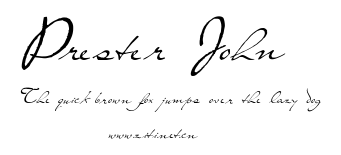 Prester John
The quick brown fox jumps over the lazy dog
www.ziti.net.cn